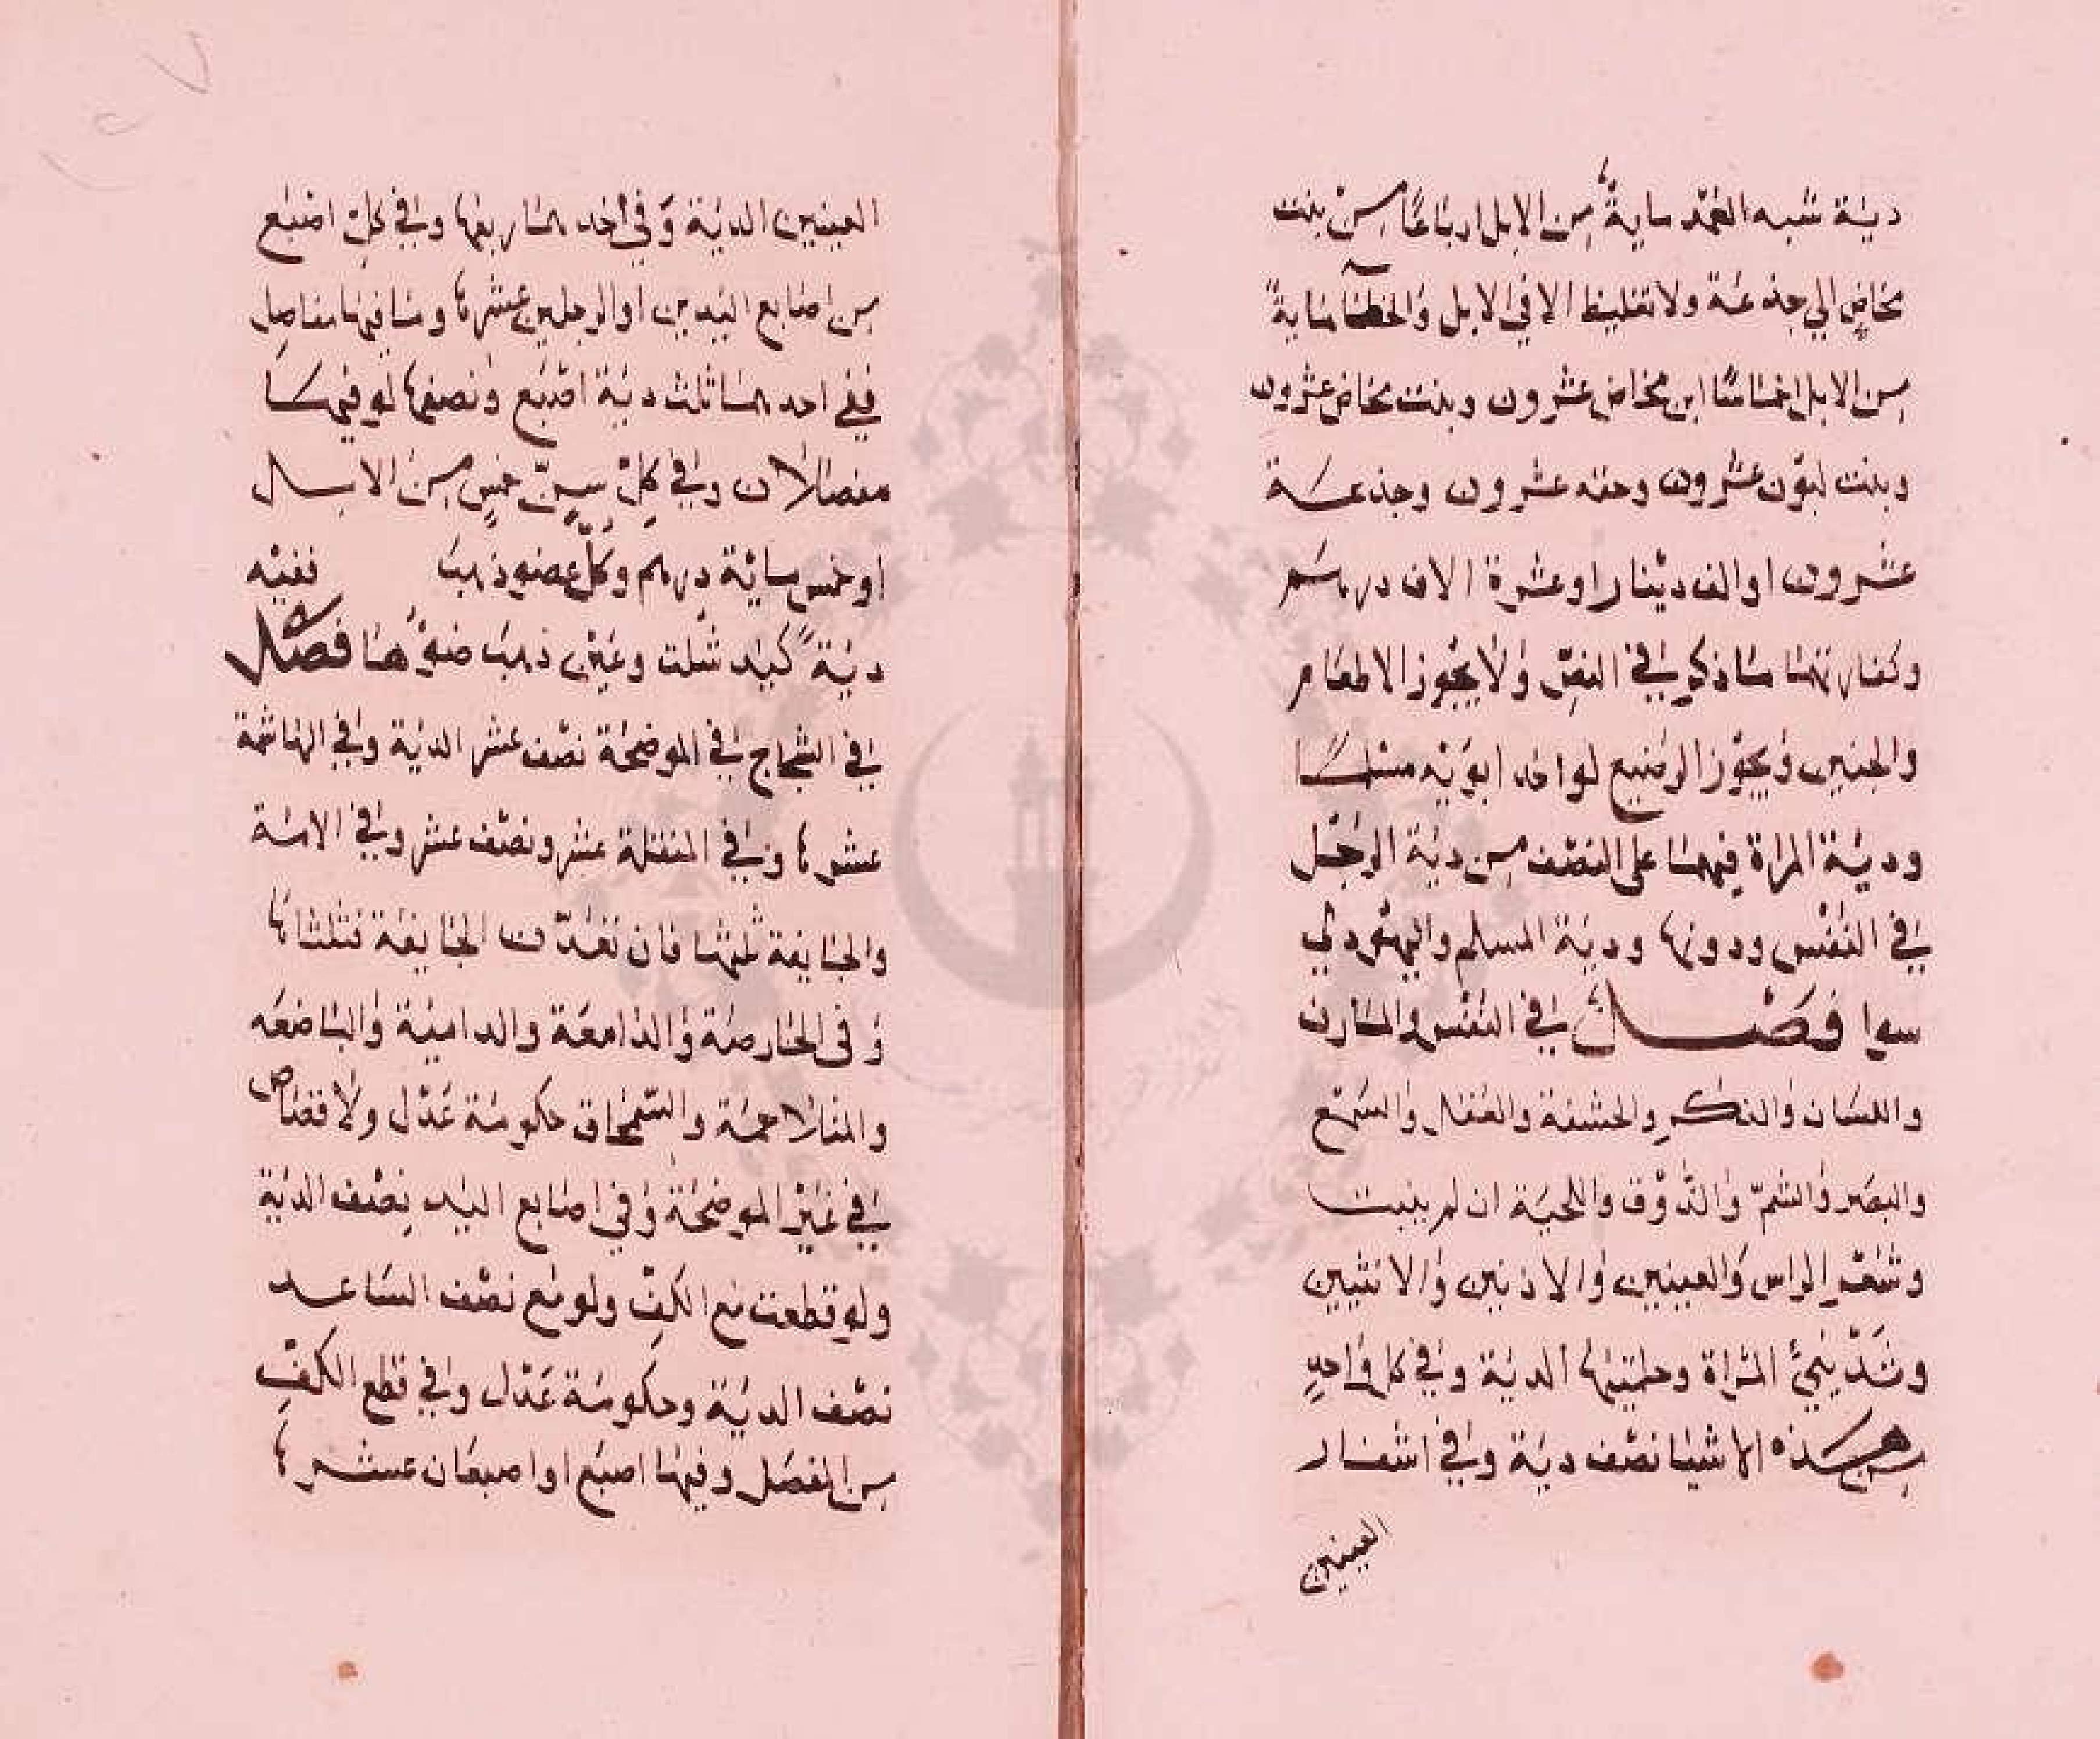 دية شبه العمد ماية من الابل ارباعا من بنت
مخاض الي جذعة ولا تغليظ الا في الابل والخطا ماية
من الابل اخماسا ابن مخاض عشرون وبنت مخاض عشرون
وبنت لبون عشرون وحقه عشرون وجذعة
عشرون او الف دينار او عشرة الاف درهم
وكفارتهما ما ذكر في النص ولا يجوز الاطعام
والجنين ويجوز الرضيع لو احد ابويه مسلما
ودية المراة فيهما على النصف من دية الرجل
في النفس ودونها ودية المسلم واليهودي
سوا فصل في النفس والمارن
واللسان والذكر والحشفة والعقل والسمع
والبصر والشم والذوق واللحية ان لم ينبت
وشعر الراس والعينين والاذنين والانثيين
وثديي المراة وحلمتيها الدية وفي كل واحد
من هذه الاشيا نصف دية وفي اشفار
العينين
العينين الدية وفي احدها ربعها وفي كل اصبع
من اصابع اليدين او الرجلين عشرها وما فيها مفاصل
ففي احدها ثلث دية اصبع ونصفها لو فيها
مفصلان وفي كل سن خمس من الابل
او خمس ماية درهم وكل عضو ذهب نفعه
دية كيد شلت وعين ذهب ضوها فصل
في الشجاج في الموضحة نصف عشر الدية وفي الهاشمة
عشرها وفي المنقلة عشر ونصف عشر وفي الامة
والجايفة ثلثها فان نفذت الجايفة فثلثاها
وفى الحارصة والدامعة والدامية والباضعه
والمتلاحمة والسمحاق حكومة عدل ولا قصاص
في غير الموضحة وفي اصابع اليد نصف الدية
ولو قطعت مع الكف ولو مع نصف الساعد
نصف الدية وحكومة عدل وفي قطع الكف
من المفصل وفيها اصبع او اصبعان عشرها